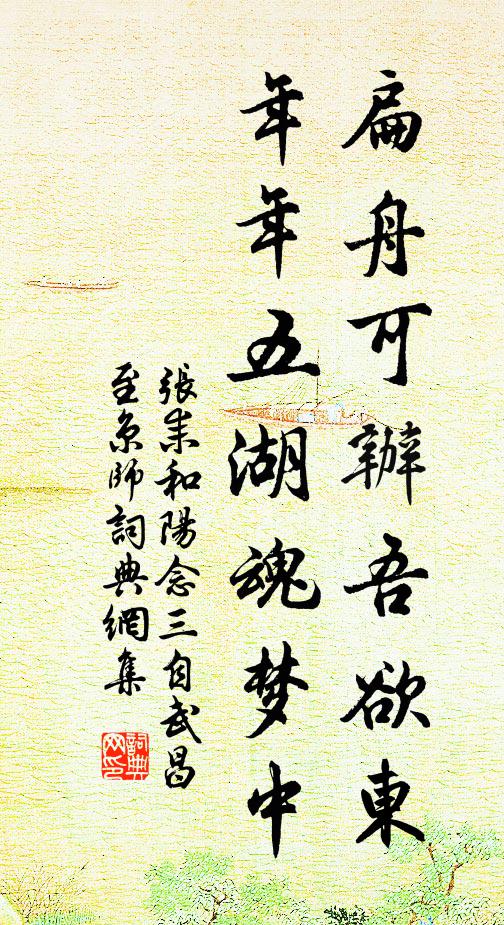 扁舟可辦吾欲東
年年五湖魂梦中
張耒和陽念三自武昌
至京師詞典網集
詞典
网印